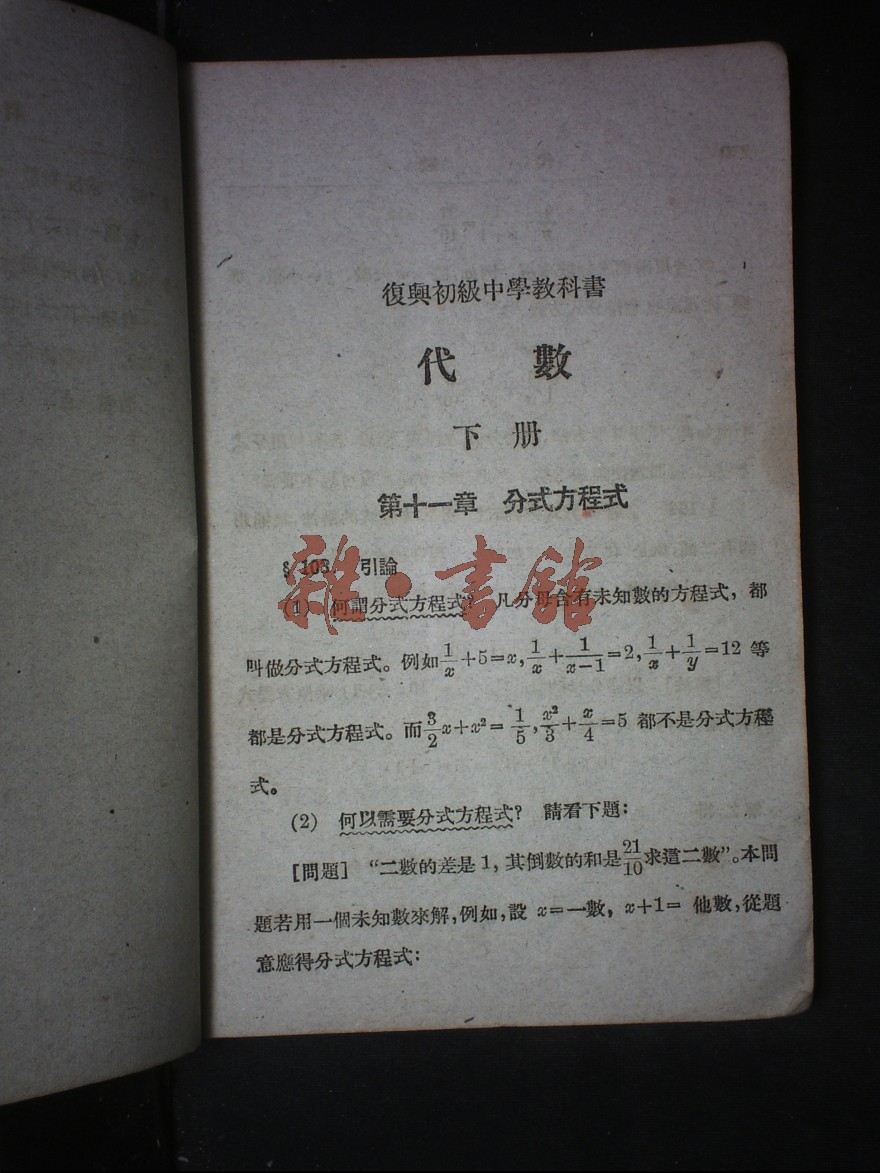 復興初級中學教科書
代數
下册
第十一章 分式方程式
§ 103. 引論
(1) 何謂分式方程式? 凡分母含有未知數的方程式，都
叫做分式方程式。例如 1/x+5=x, 1/x+1/(x-1)=2, 1/x+1/y=12 等
都是分式方程式。而 3/2x+x²=1/5, x²/3+x/4=5 都不是分式方程
式。
(2) 何以需要分式方程式? 請看下題：
[問題] “二數的差是1, 其倒數的和是21/10求這二數”。本問
題若用一個未知數來解，例如，設 x=一數，x+1= 他數，從題
意應得分式方程式：
雜·書館